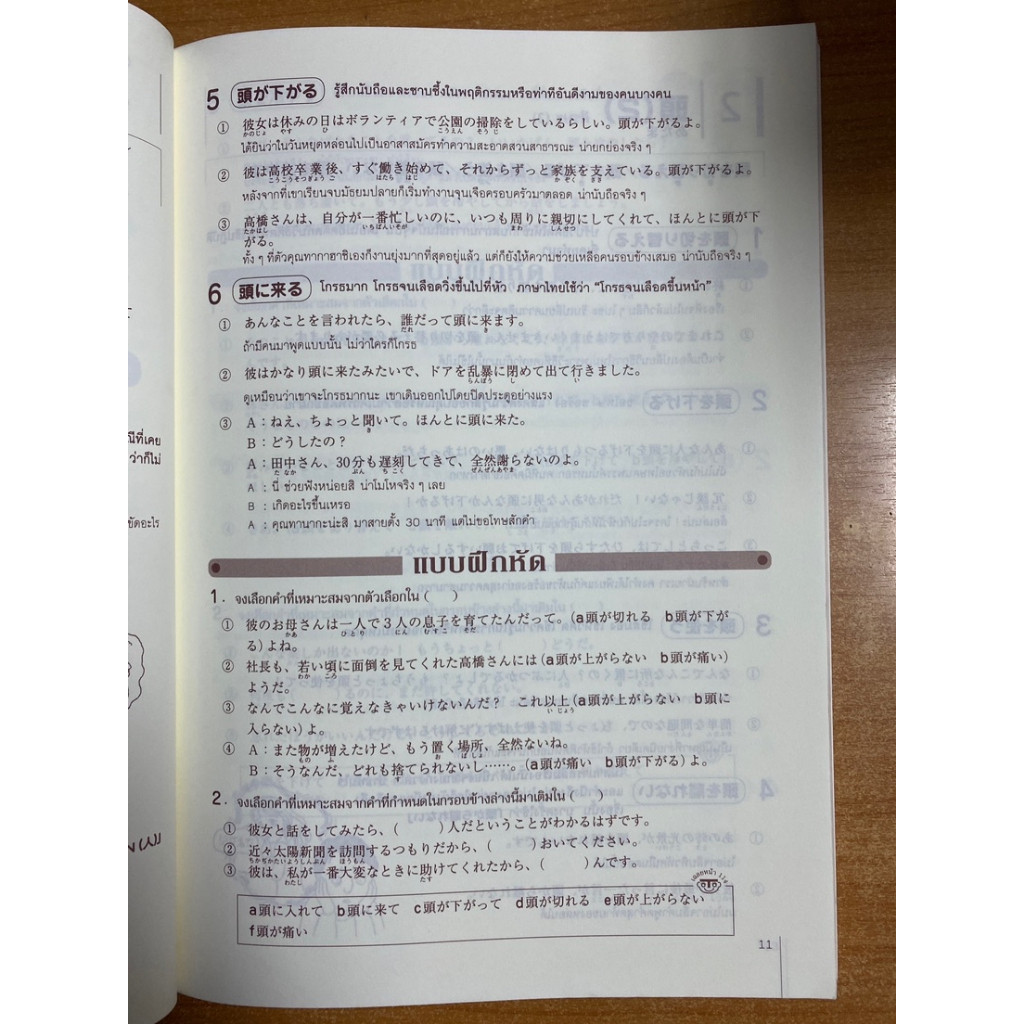 5 頭が下がる รู้สึกนับถือและซาบซึ้งในพฤติกรรมหรือท่าทีอันดีงามของคนบางคน
① 彼女は休みの日はボランティアで公園の掃除をしているらしい。頭が下がるよ。
かのじょ やす ひ こうえん そうじ
ได้ยินว่าในวันหยุดหล่อนไปเป็นอาสาสมัครทำความสะอาดสวนสาธารณะ น่ายกย่องจริง ๆ
② 彼は高校卒業後、すぐ働き始めて、それからずっと家族を支えている。頭が下がるよ。
こうこうそつぎょうご はたら はじ かぞく ささ
หลังจากที่เขาเรียนจบมัธยมปลายก็เริ่มทำงานจุนเจือครอบครัวมาตลอด น่านับถือจริง ๆ
③ 高橋さんは、自分が一番忙しいのに、いつも周りに親切にしてくれて、ほんとに頭が下
たかはし いちばんいそが まわ しんせつ
がる。
ทั้ง ๆ ที่ตัวคุณทากาฮาชิเองก็งานยุ่งมากที่สุดอยู่แล้ว แต่ก็ยังให้ความช่วยเหลือคนรอบข้างเสมอ น่านับถือจริง ๆ
6 頭に来る โกรธมาก โกรธจนเลือดวิ่งขึ้นไปที่หัว ภาษาไทยใช้ว่า "โกรธจนเลือดขึ้นหน้า"
① あんなことを言われたら、誰だって頭に来ます。
だれ き
ถ้ามีคนมาพูดแบบนั้น ไม่ว่าใครก็โกรธ
② 彼はかなり頭に来たみたいで、ドアを乱暴に閉めて出て行きました。
らんぼう し い
ดูเหมือนว่าเขาจะโกรธมากนะ เขาเดินออกไปโดยปิดประตูอย่างแรง
③ A：ねえ、ちょっと聞いて。ほんとに頭に来た。
き
B：どうしたの？
A：田中さん、30分も遅刻してきて、全然謝らないのよ。
たなか ぷん ちこく ぜんぜんあやま
A : นี่ ช่วยฟังหน่อยสิ น่าโมโหจริง ๆ เลย
B : เกิดอะไรขึ้นเหรอ
A : คุณทานากะน่ะสิ มาสายตั้ง 30 นาที แต่ไม่ขอโทษสักคำ
แบบฝึกหัด
1. จงเลือกคำที่เหมาะสมจากตัวเลือกใน ( )
① 彼のお母さんは一人で3人の息子を育てたんだって。(a頭が切れる b頭が下が
かあ ひとり にん むすこ そだ
る)よね。
② 社長も、若い頃に面倒を見てくれた高橋さんには(a頭が上がらない b頭が痛い)
わか ころ
ようだ。
③ なんでこんなに覚えなきゃいけないんだ？ これ以上(a頭が上がらない b頭に
いじょう
入らない)よ。
④ A：また物が増えたけど、もう置く場所、全然ないね。
もの ふ お ばしょ
B：そうなんだ、どれも捨てられないし……。(a頭が痛い b頭が下がる)よ。
す
2. จงเลือกคำที่เหมาะสมจากคำที่กำหนดในกรอบข้างล่างนี้มาเติมใน ( )
① 彼女と話をしてみたら、( )人だということがわかるはずです。
② 近々太陽新聞を訪問するつもりだから、( )おいてください。
ちかぢかたいようしんぶん ほうもん
③ 彼は、私が一番大変なときに助けてくれたから、( )んです。
わたし たす
เฉลยหน้า
a頭に入れて b頭に来て c頭が下がって d頭が切れる e頭が上がらない
f頭が痛い
11
ณีที่เคย
ว่าก็ไม่
ขัดอะไร